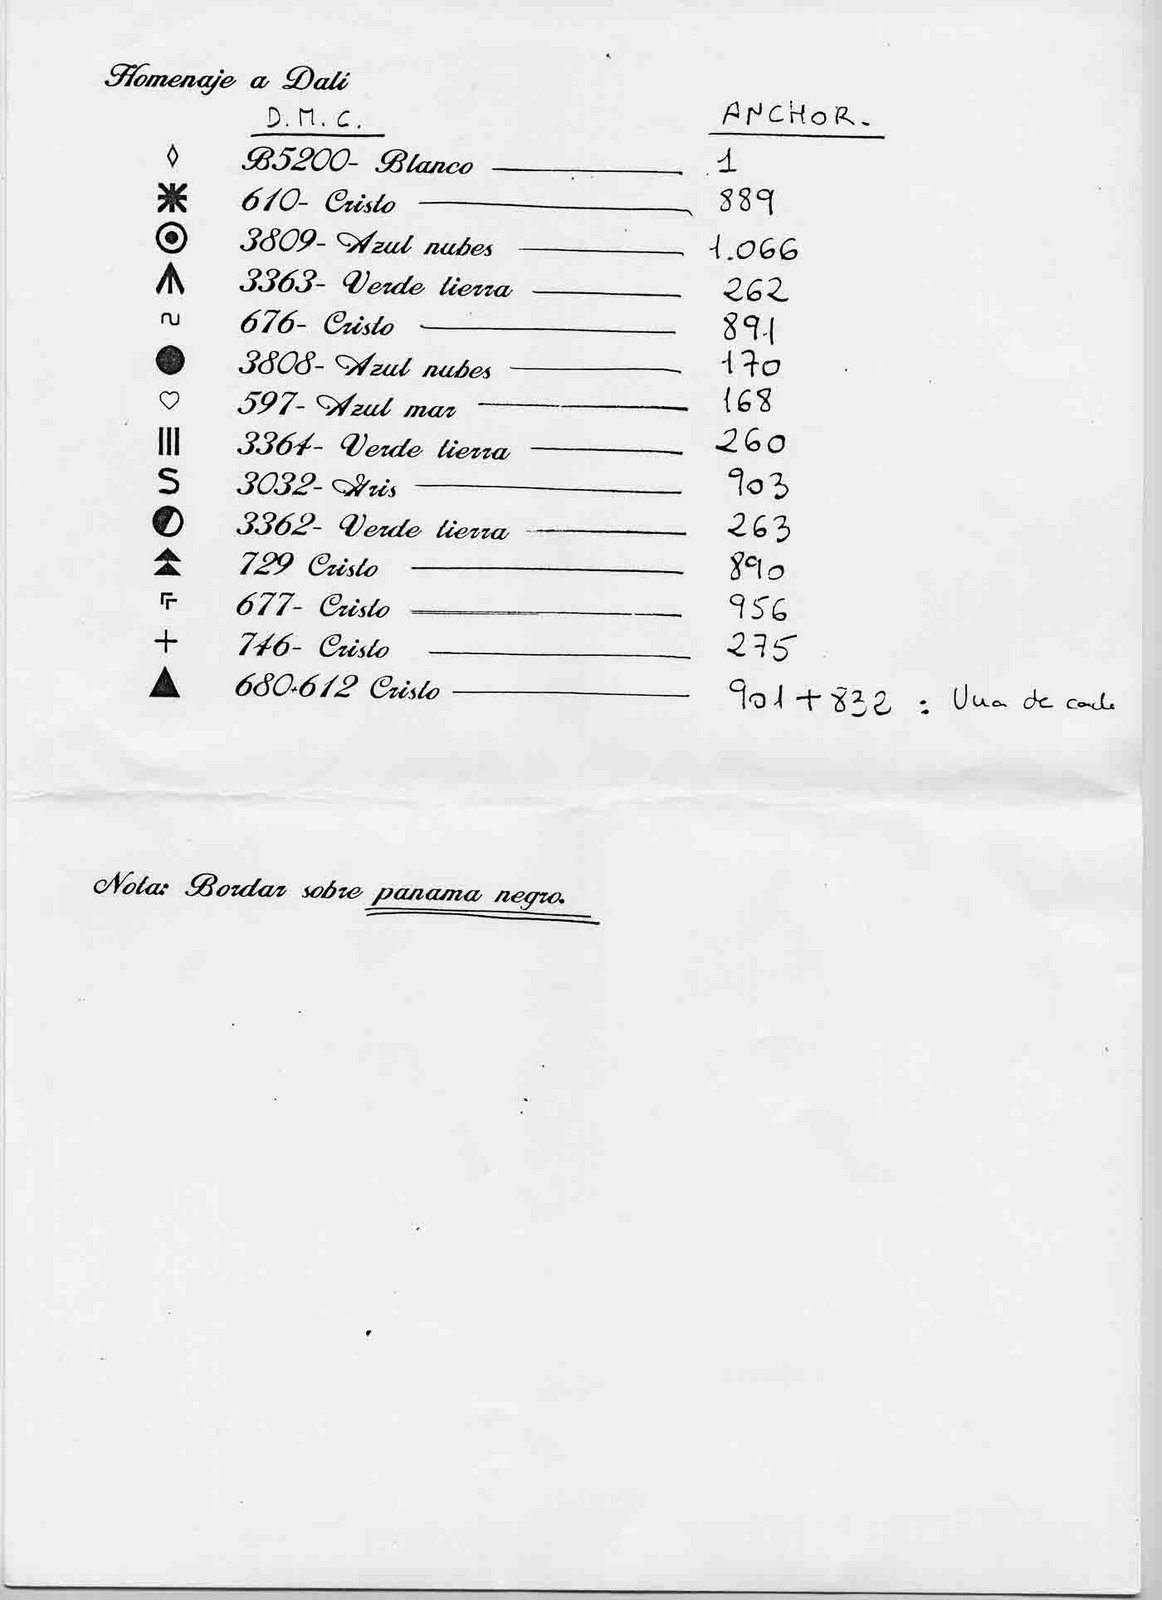 Homenaje a Dalí
D.M.C. ANCHOR.
B5200- Blanco 1
610- Cristo 889
3809- Azul nubes 1.066
3363- Verde tierra 262
676- Cristo 891
3808- Azul nubes 170
597- Azul mar 168
3364- Verde tierra 260
S 3032- Gris 903
3362- Verde tierra 263
729 Cristo 890
677- Cristo 956
+ 746- Cristo 275
680+612 Cristo 901 + 832 : Una de cada
Nota: Bordar sobre panama negro.